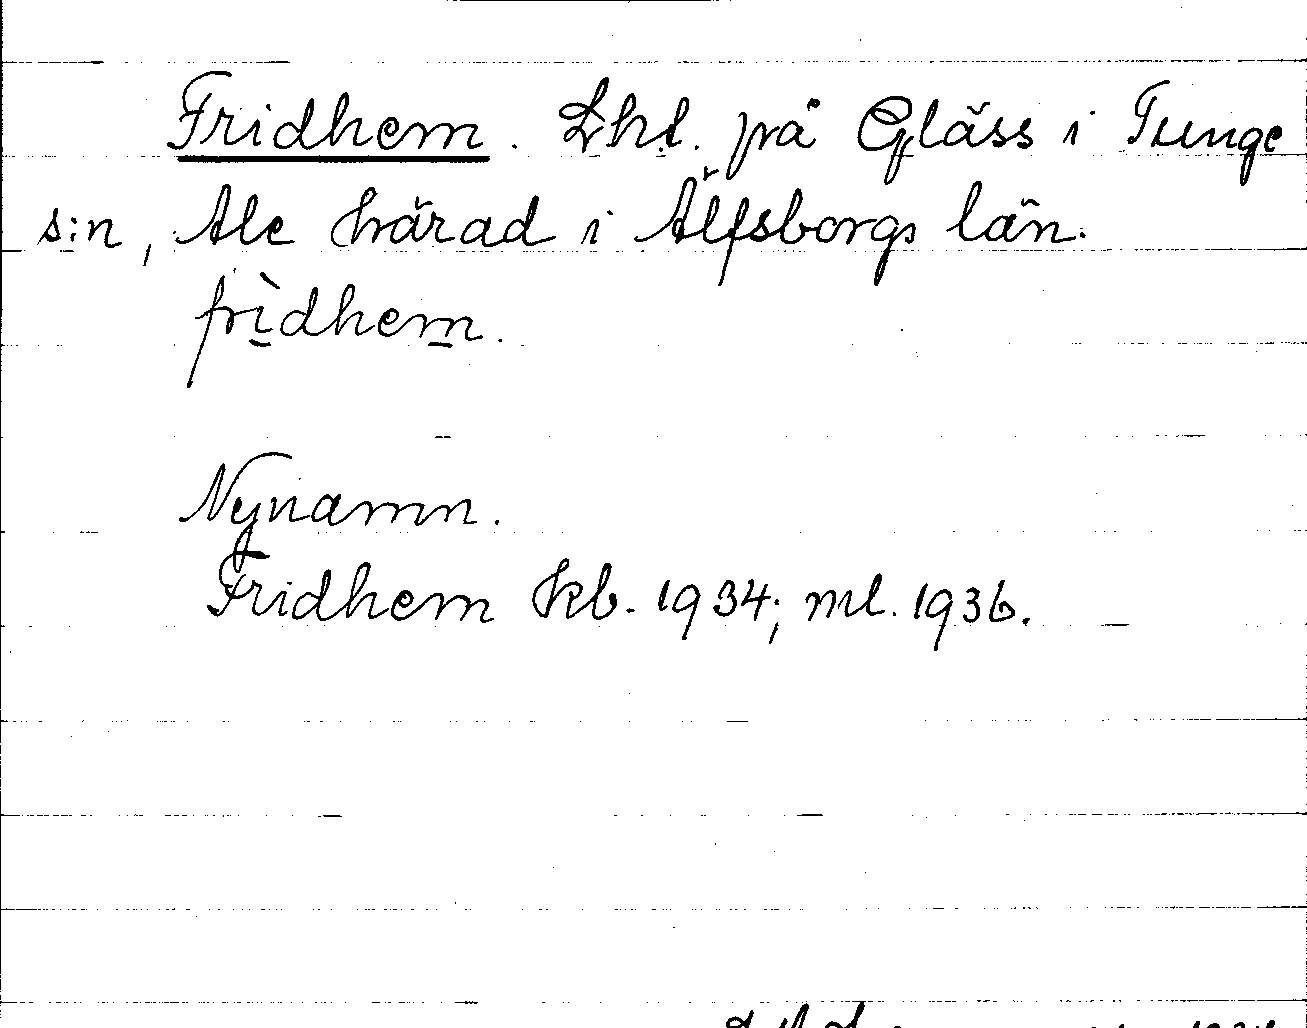 Fridhem. Lht. på Gläss i Tunge
s:n, Ale härad i Älfsborgs län.
frìdhem.
Nynamn.
Fridhem kb. 1934; ml. 1936.